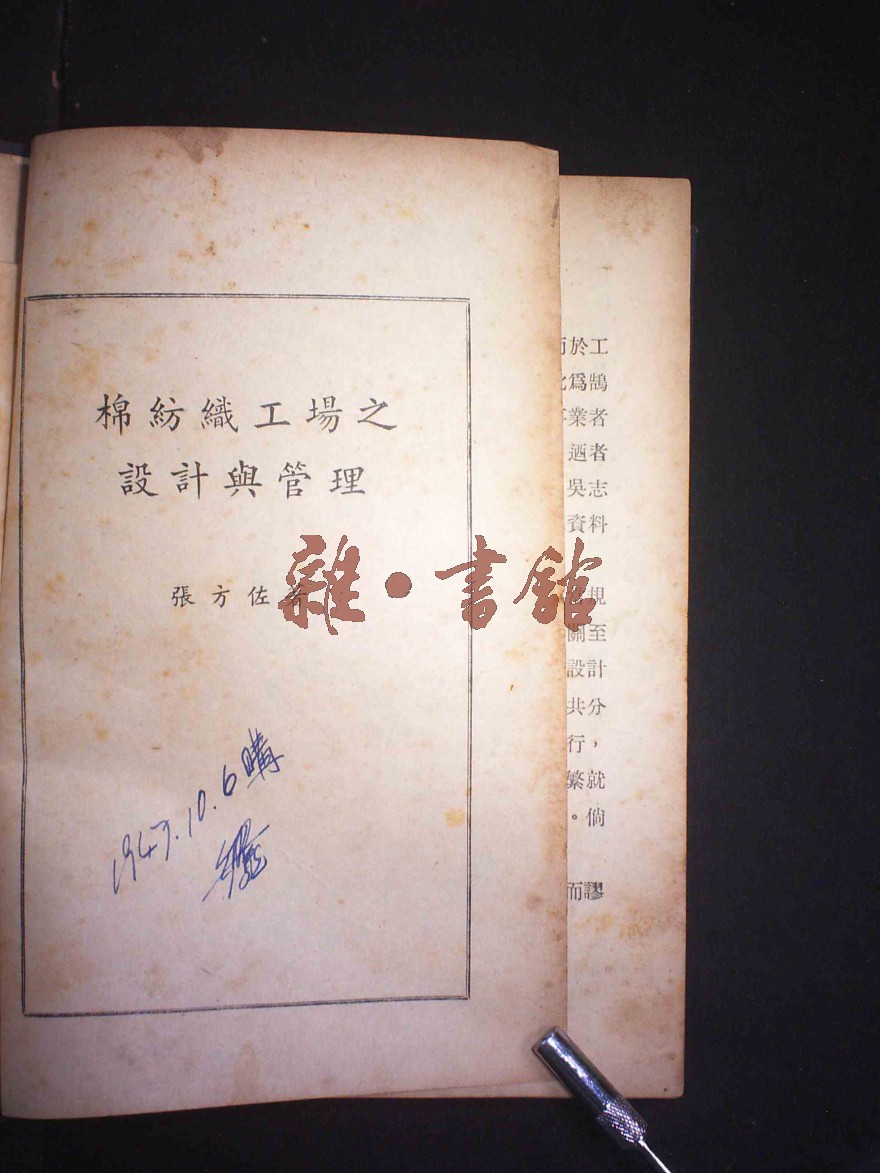 棉紡織工場之
設計與管理
張方佐著
雜·書館
1947.10.6購
於工
爲鵠
業者
迺者
吳志
資料
規
關至
設計
共分
行，
繁就
。倘
而謬